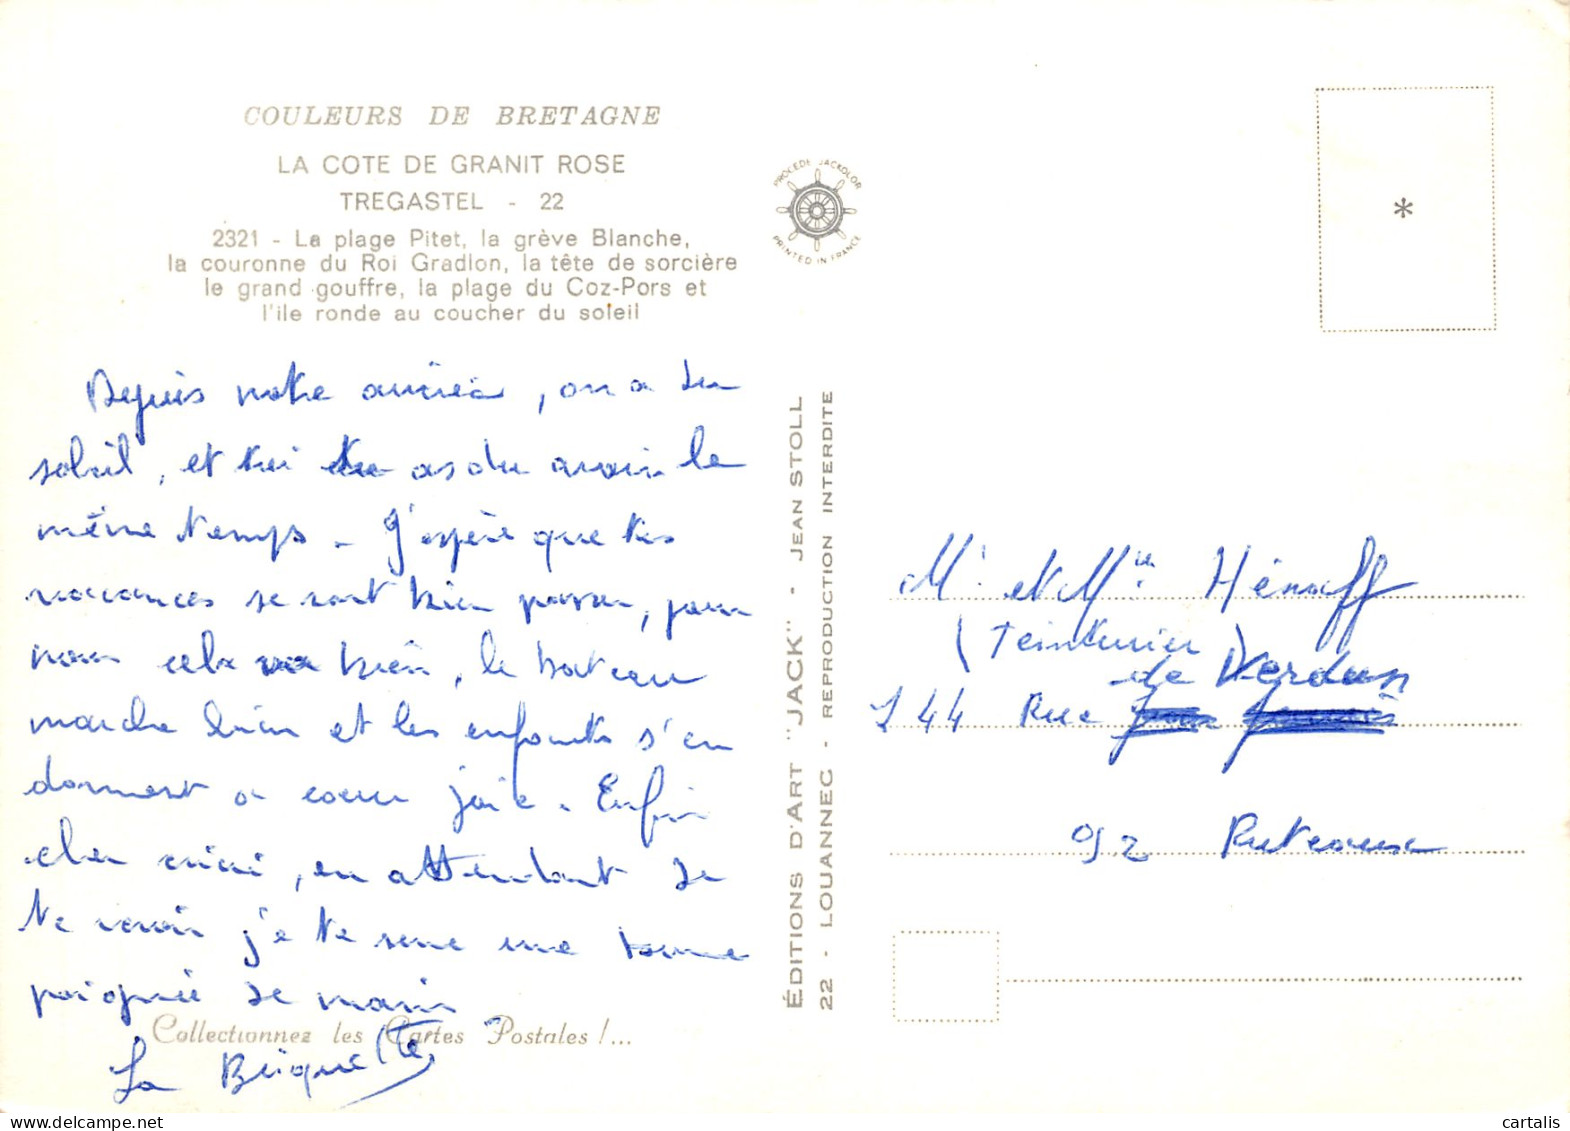 COULEURS DE BRETAGNE
LA COTE DE GRANIT ROSE
TREGASTEL - 22
2321 - La plage Pitet, la grève Blanche,
la couronne du Roi Gradlon, la tête de sorcière
le grand gouffre, la plage du Coz-Pors et
l'ile ronde au coucher du soleil
Depuis notre arrivée, on a du
soleil, et toi as du avoir le
même temps - J'espère que tes
vacances se sont bien passer, pour
nous cela va bien, le bateau
marche bien et les enfants s'en
donnent a coeur joie. Enfin
cher mimi, en attendant de
te revoir je te serre une bonne
poignée de main
La Briquette
Collectionnez les Cartes Postales !...
PROCEDE JACKOLOR
PRINTED IN FRANCE
ÉDITIONS D'ART "JACK" - JEAN STOLL
22 - LOUANNEC - REPRODUCTION INTERDITE
*
Mr et Mme Hénaff
(Teinturier
de Verdun
144 Rue
092 Puteaux
cartalis